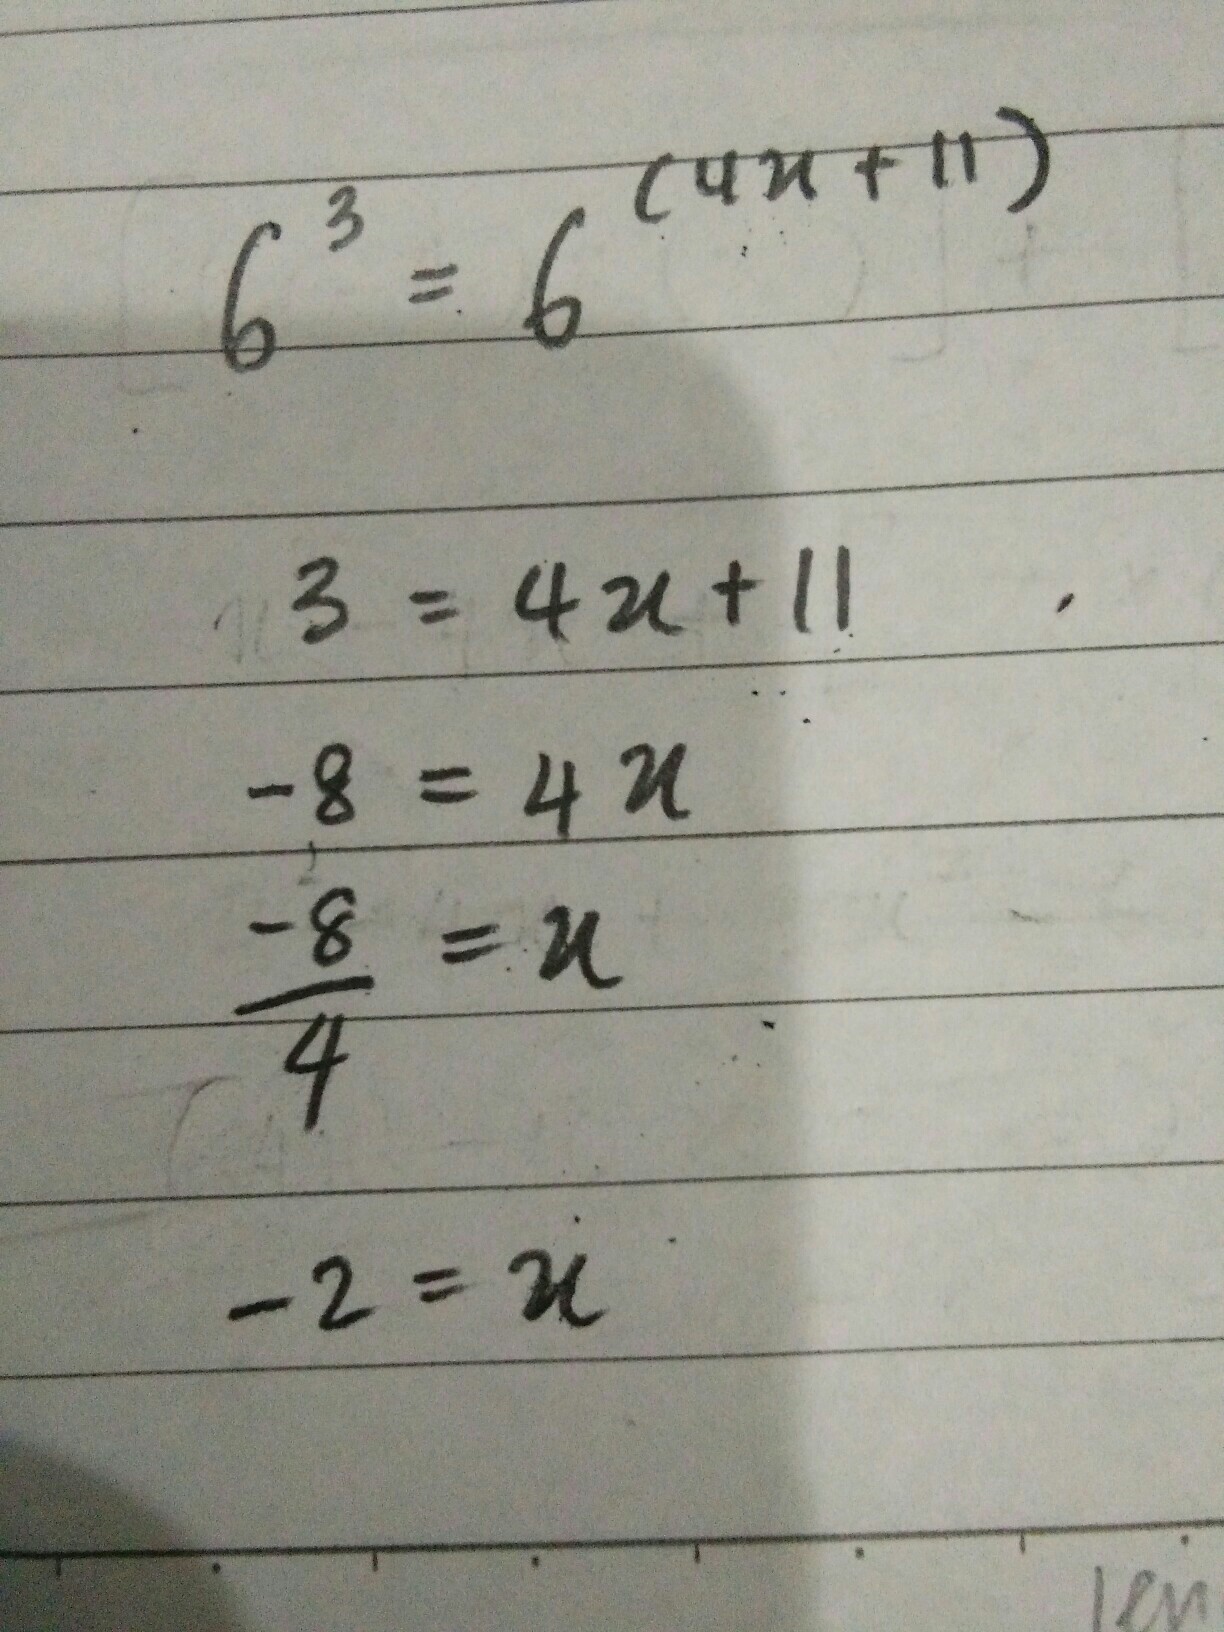 6^3 = 6^(4x + 11)
3 = 4x + 11
-8 = 4x
-8/4 = x
-2 = x